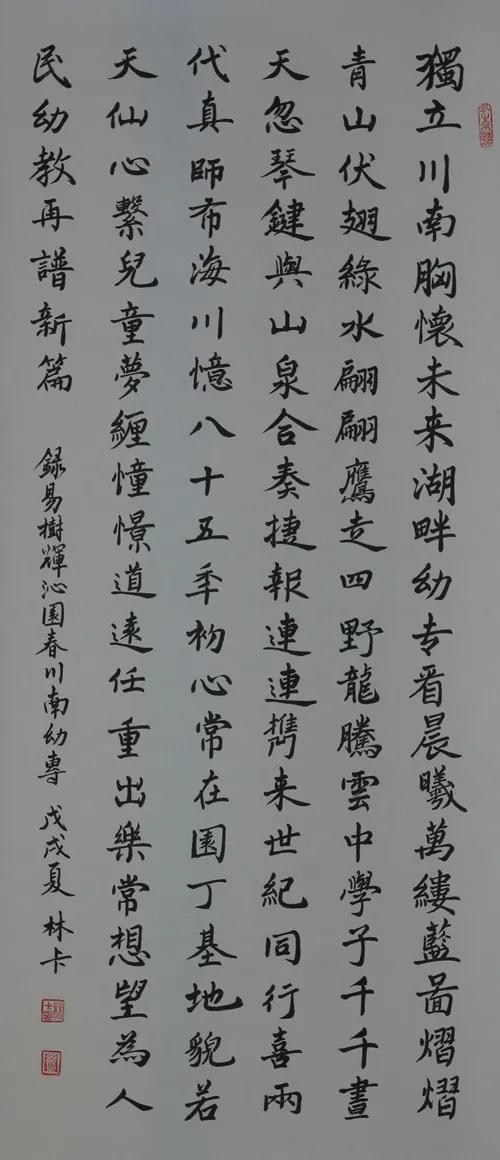 獨立川南胸懷未来湖畔幼专看晨曦萬縷藍啚熠熠
青山伏翅綠水翩翩鷹走四野龍騰雲中學子千千晝
天忽琴鍵與山泉合奏捷報連連擕来世紀同行喜兩
代真師布海川憶八十五季初心常在園丁基地貌若
天仙心繫兒童夢纏憧憬道遠任重出樂常想望為人
民幼教再譜新篇
録易樹輝沁園春川南幼專 戊戌夏 林卡